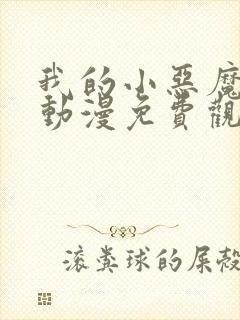 我的小惡魔
動漫免費觀
滚粪球的屎殼